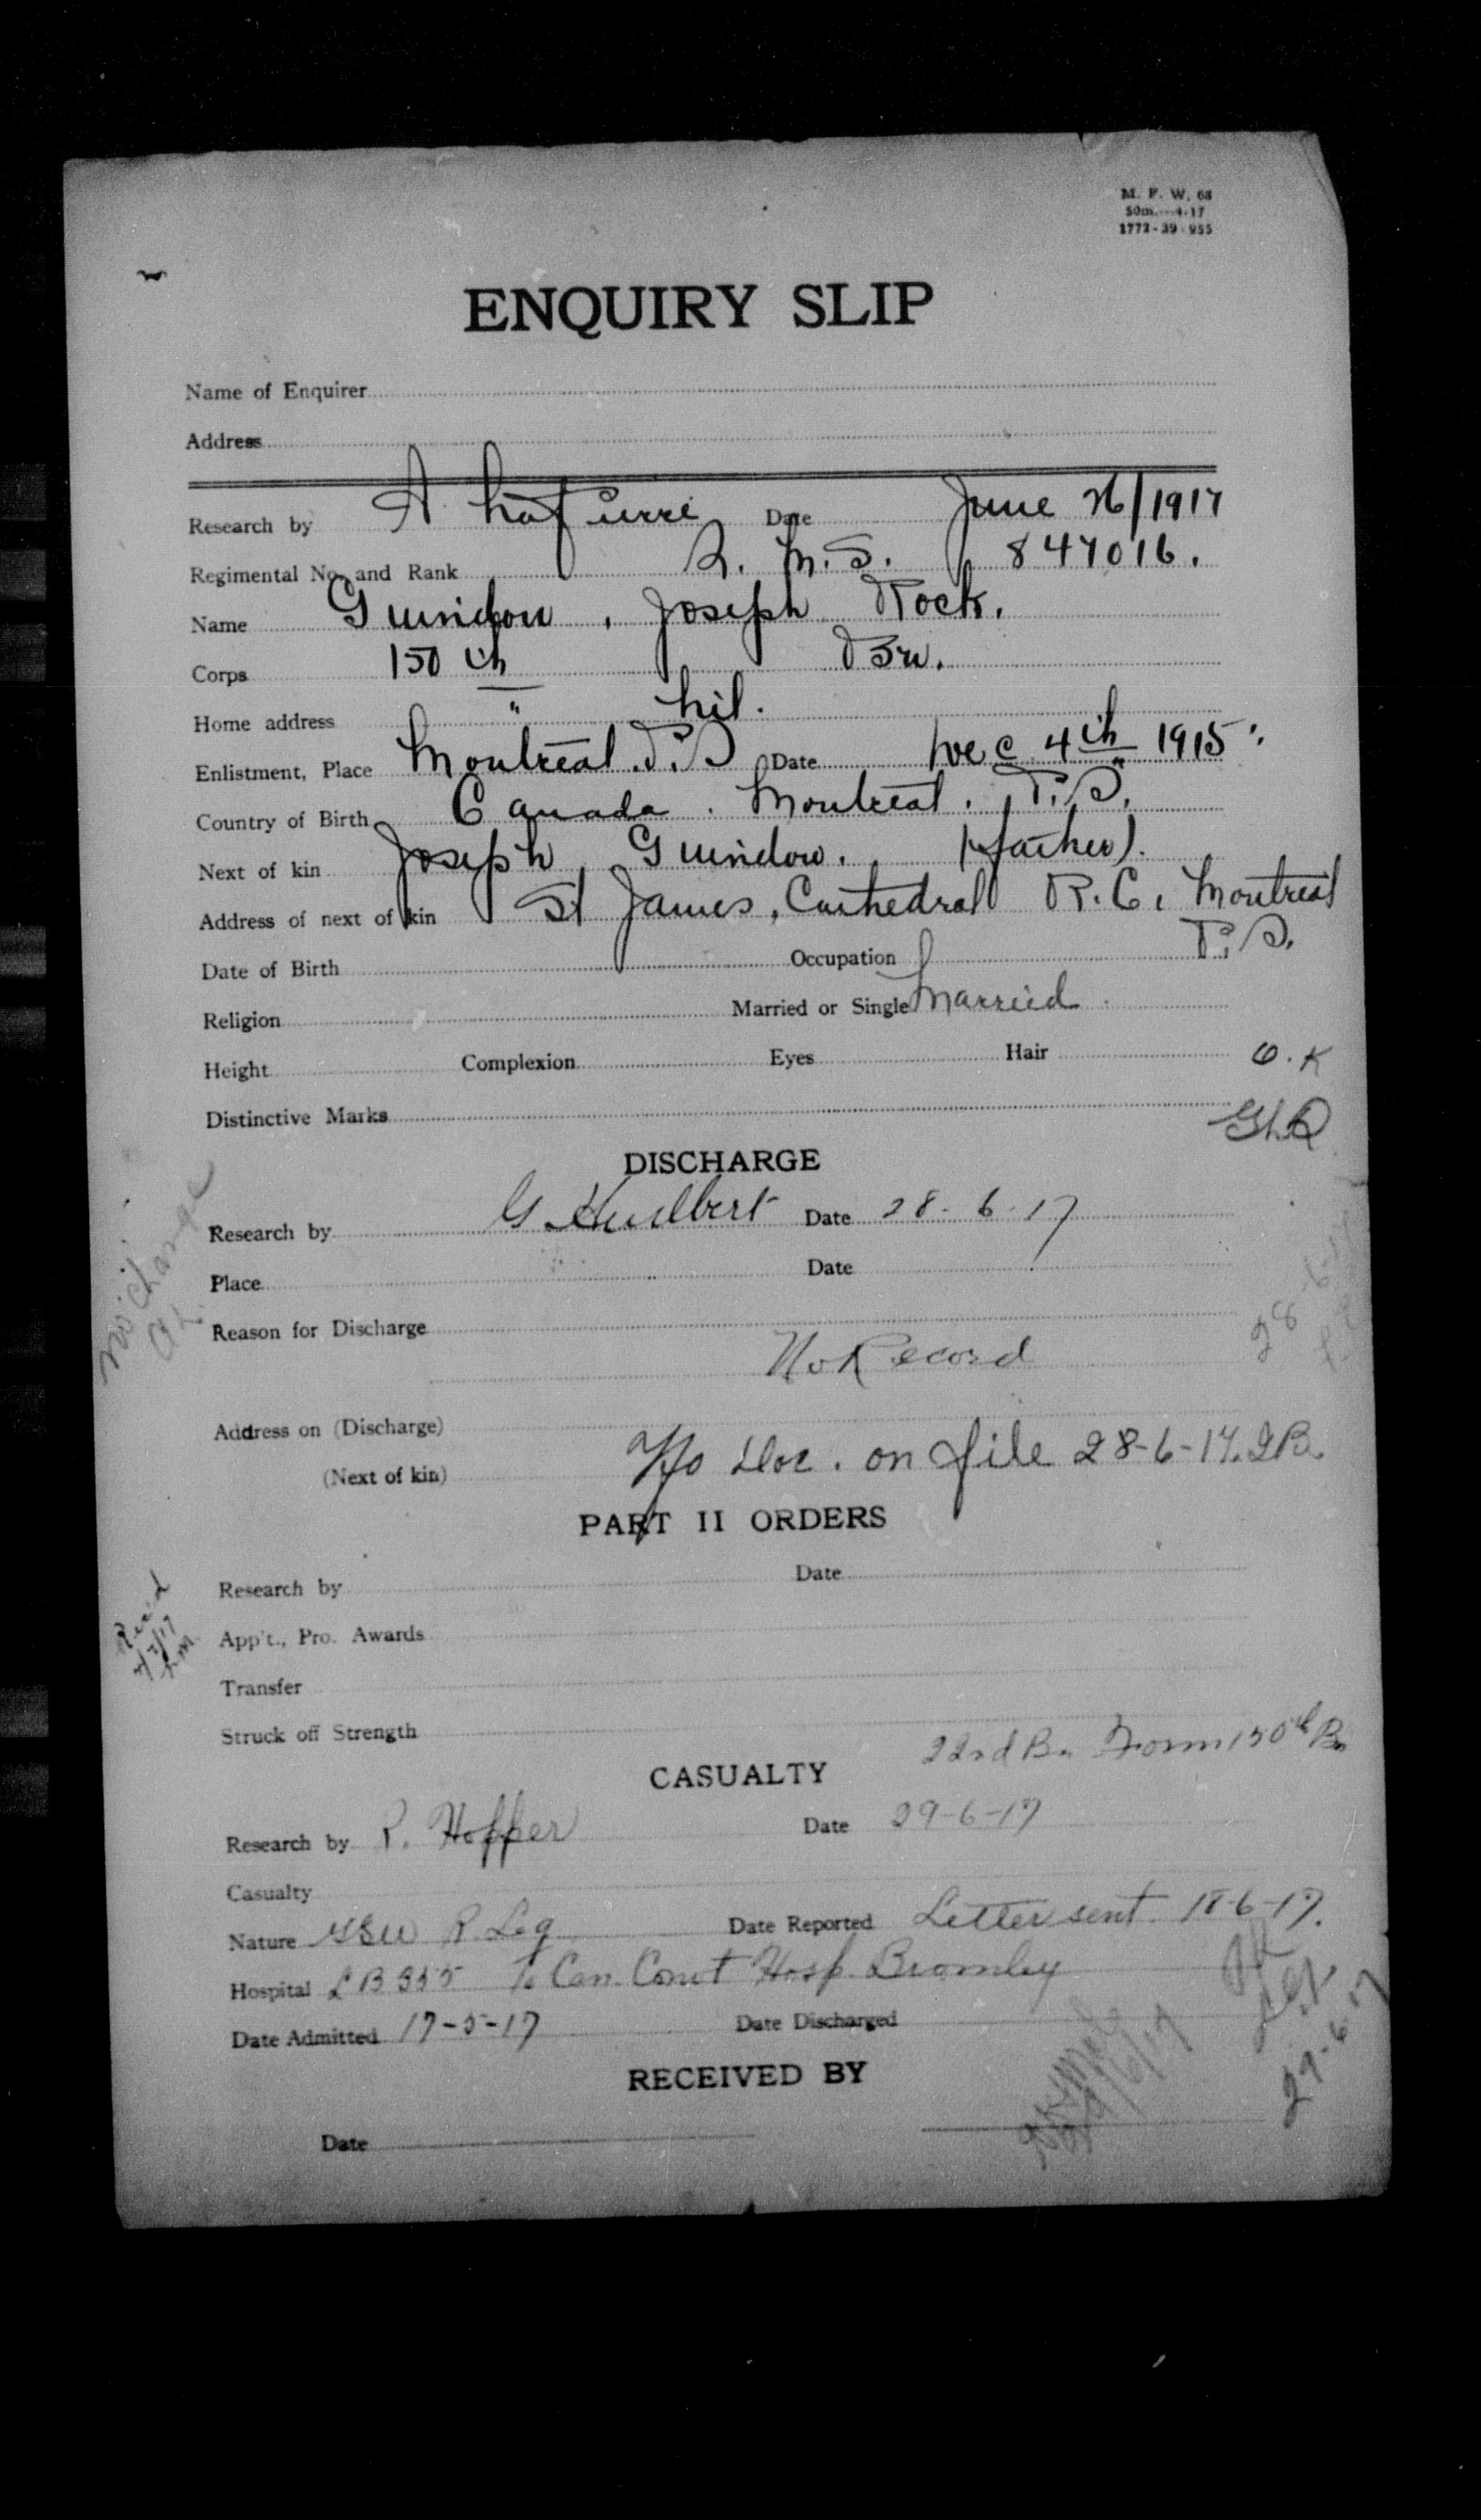 M. F. W. 68
50m.—4-17
1772-39-955
ENQUIRY SLIP
Name of Enquirer
Address
Research by A Lapierre Date June 26/1917
Regimental No. and Rank Q. M. S. 847016.
Name Guindon, Joseph Rock.
Corps 150th Bn.
Home address " Nil.
Enlistment, Place Montreal. P.Q Date Dec 4th 1915
Country of Birth Canada. Montreal. P.Q.
Next of kin Joseph Guindon. (father).
Address of next of kin St James, Cathedral R.C. Montreal
P.Q.
Date of Birth Occupation
Religion Married or Single Married
Height Complexion Eyes Hair O.K
Distinctive Marks
DISCHARGE
Research by G. Hurlbert Date 28-6-17
no change
Place Date
Reason for Discharge
No Record
Address on (Discharge)
(Next of kin) No Doc. on file 28-6-17.
PART II ORDERS
Research by Date
App't., Pro. Awards
Transfer
Struck off Strength
22nd Bn Form 150th Bn
CASUALTY
Research by R. Hopper Date 29-6-17
Casualty
Nature GSW R. Leg Date Reported Letter sent 18-6-17.
Hospital To Can. Conv't Hosp. Bromley
Date Admitted 17-5-17 Date Discharged
29-6-17
RECEIVED BY
Date